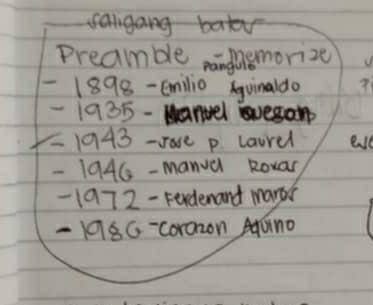 saligang batas
Preamble - Memorize
Pangulo
- 1898 - Emilio Aguinaldo
- 1935 - Manuel Quezon
- 1943 - Jose p. Laurel
- 1946 - Manuel Roxas
- 1972 - Ferdenand Marcos
- 1986 - Corazon Aquino